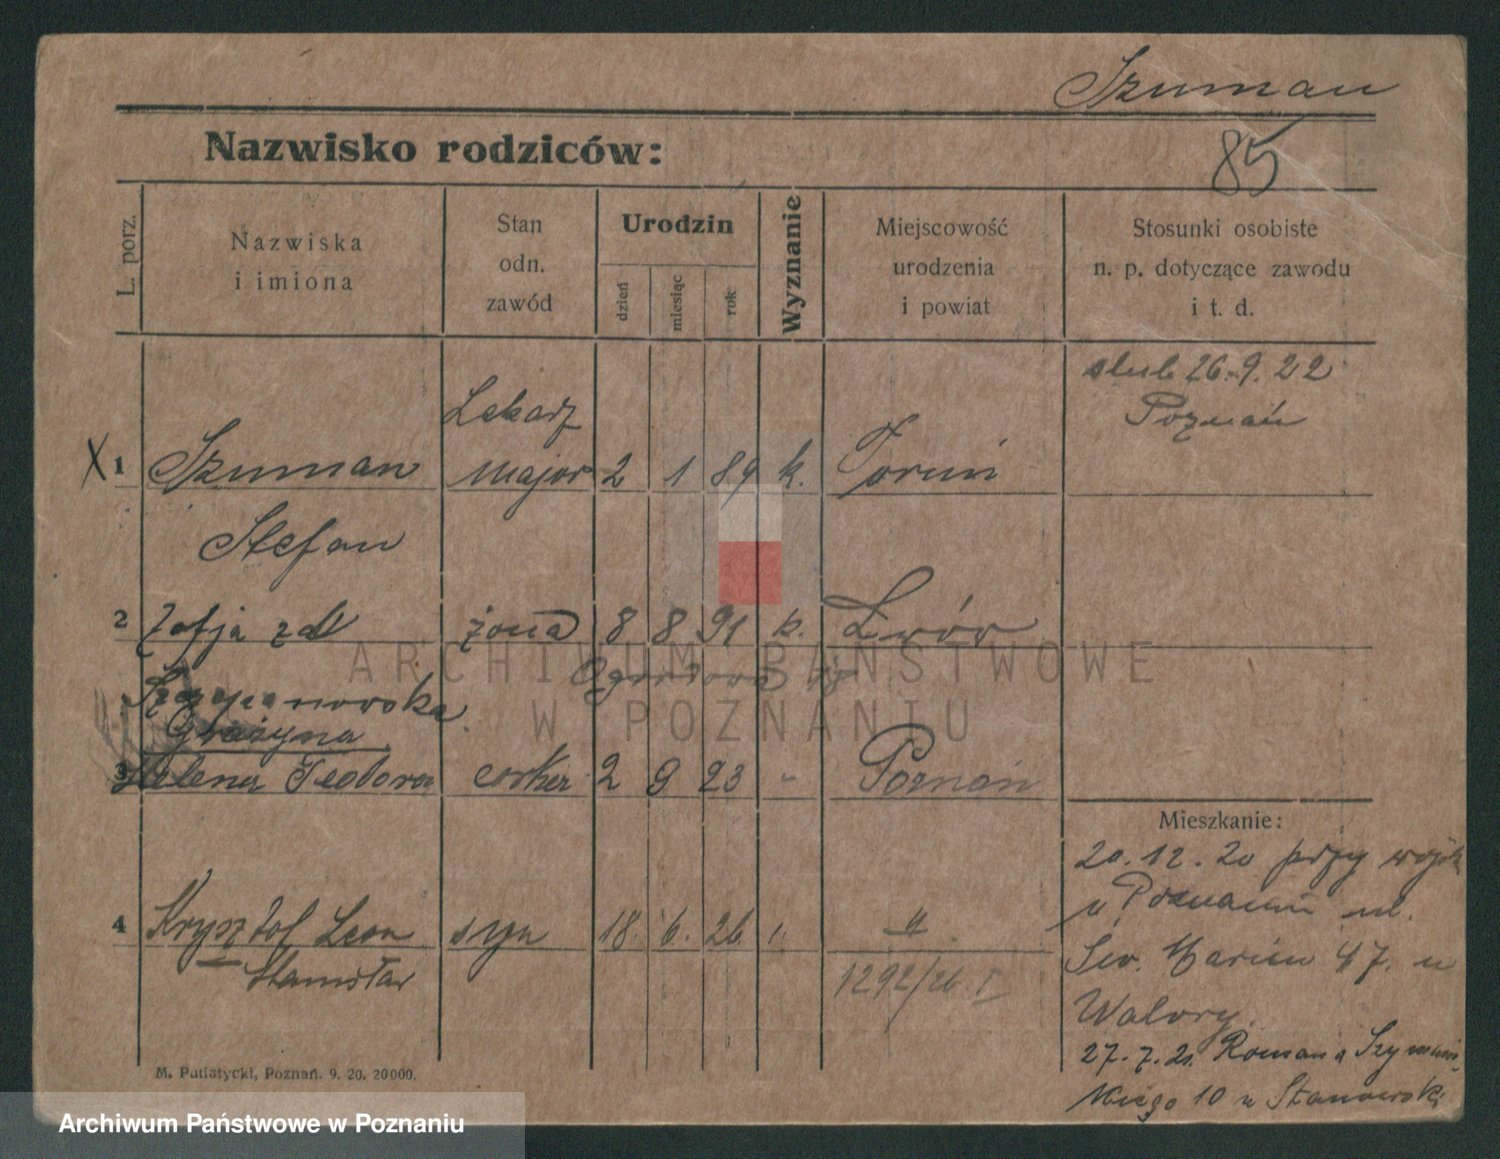 Szuman
85
Nazwisko rodziców:
L. porz.
Nazwiska
i imiona
Stan
odn.
zawód
Urodzin
dzień
miesiąc
rok
Wyznanie
Miejscowość
urodzenia
i powiat
Stosunki osobiste
n. p. dotyczące zawodu
i t. d.
slub 26.9.22
Poznań
Lekarz
X 1 Szuman major 2 1 89 k. Toruń
Stefan
2 Zofja zd żona 8 8 91 k. Lwów
Szczepanowska
Grażyna
3 Helena Teodora corka 2 9 23 " Poznań
Mieszkanie:
20.12.20 przy
u Poznaniu ul.
Św. Marcin 47. u
4 Krysztof Leon syn 18. 6. 26 "
Stanisław
1292/26 I
Walory.
27.7.21. Romana Szymań-
skiego 10 u
M. Putiatycki, Poznań. 9. 20. 20000.
ARCHIWUM PAŃSTWOWE
W POZNANIU
Archiwum Państwowe w Poznaniu